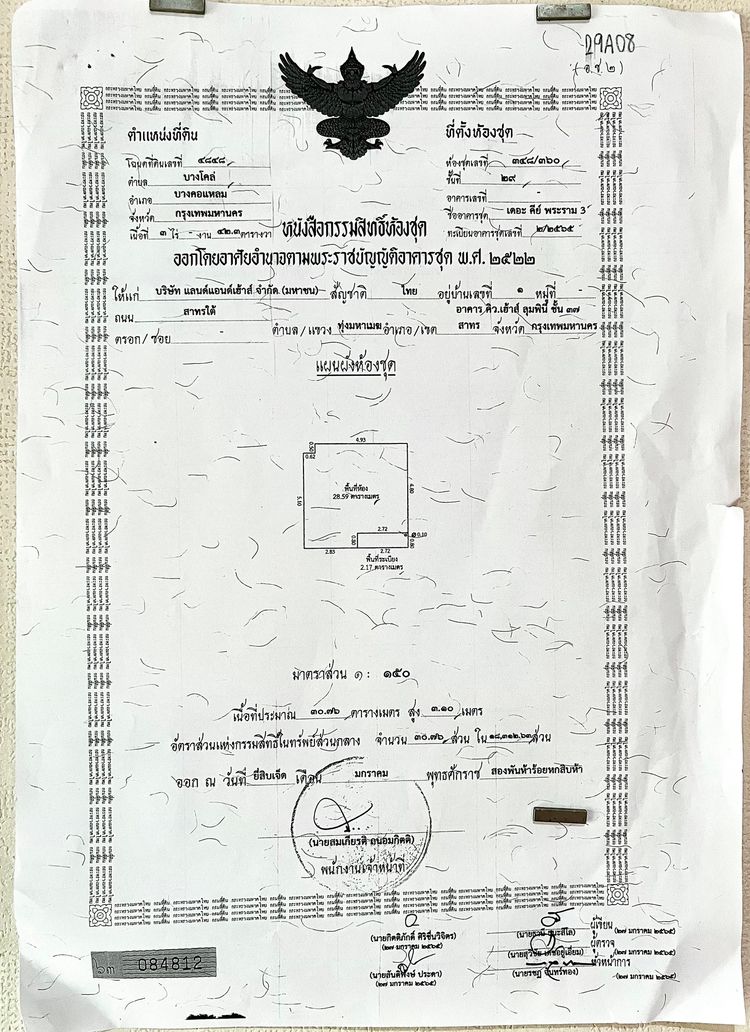 29A08
(อ.ช.๒)
ตำแหน่งที่ดิน
โฉนดที่ดินเลขที่ ๔๘๔๘
ตำบล บางโคล่
อำเภอ บางคอแหลม
จังหวัด กรุงเทพมหานคร
เนื้อที่ ๓ ไร่ - งาน ๔๒.๓ ตารางวา
ที่ตั้งห้องชุด
ห้องชุดเลขที่ ๓๔๘/๓๖๐
ชั้นที่ ๒๙
อาคารเลขที่ -
ชื่ออาคารชุด เดอะ คีย์ พระราม 3
ทะเบียนอาคารชุดเลขที่ ๒/๒๕๖๕
หนังสือกรรมสิทธิ์ห้องชุด
ออกโดยอาศัยอำนาจตามพระราชบัญญัติอาคารชุด พ.ศ. ๒๕๒๒
ให้แก่ บริษัท แลนด์แอนด์เฮ้าส์ จำกัด (มหาชน) สัญชาติ ไทย อยู่บ้านเลขที่ ๑ หมู่ที่ -
อาคาร คิว.เฮ้าส์ ลุมพินี ชั้น ๓๗
ถนน สาทรใต้
ตรอก/ซอย - ตำบล/แขวง ทุ่งมหาเมฆ อำเภอ/เขต สาทร จังหวัด กรุงเทพมหานคร
แผนผังห้องชุด
4.93
0.50
0.62
5.10
4.80
พื้นที่ห้อง
28.59 ตารางเมตร
2.72
0.10
0.80
0.80
2.83
2.72
พื้นที่ระเบียง
2.17 ตารางเมตร
มาตราส่วน ๑ : ๑๕๐
เนื้อที่ประมาณ ๓๐.๗๖ ตารางเมตร สูง ๓.๑๐ เมตร
อัตราส่วนแห่งกรรมสิทธิ์ในทรัพย์ส่วนกลาง จำนวน ๓๐.๗๖ ส่วน ใน ๑๘,๓๑๒.๖๓ ส่วน
ออก ณ วันที่ ยี่สิบเจ็ด เดือน มกราคม พุทธศักราช สองพันห้าร้อยหกสิบห้า
(นายสมเกียรติ ถนอมกิตติ)
พนักงานเจ้าหน้าที่
(นายกิตติภักดิ์ ศิริชื่นวิจิตร)
(๒๗ มกราคม ๒๕๖๕)
(นายสันติพงษ์ ประดา)
(๒๗ มกราคม ๒๕๖๕)
ผู้เขียน
(๒๗ มกราคม ๒๕๖๕)
ผู้ตรวจ
(๒๗ มกราคม ๒๕๖๕)
หัวหน้าการ
(นายรชฎ จันทร์ทอง)
(๒๗ มกราคม ๒๕๖๕)
๖๓ 084812